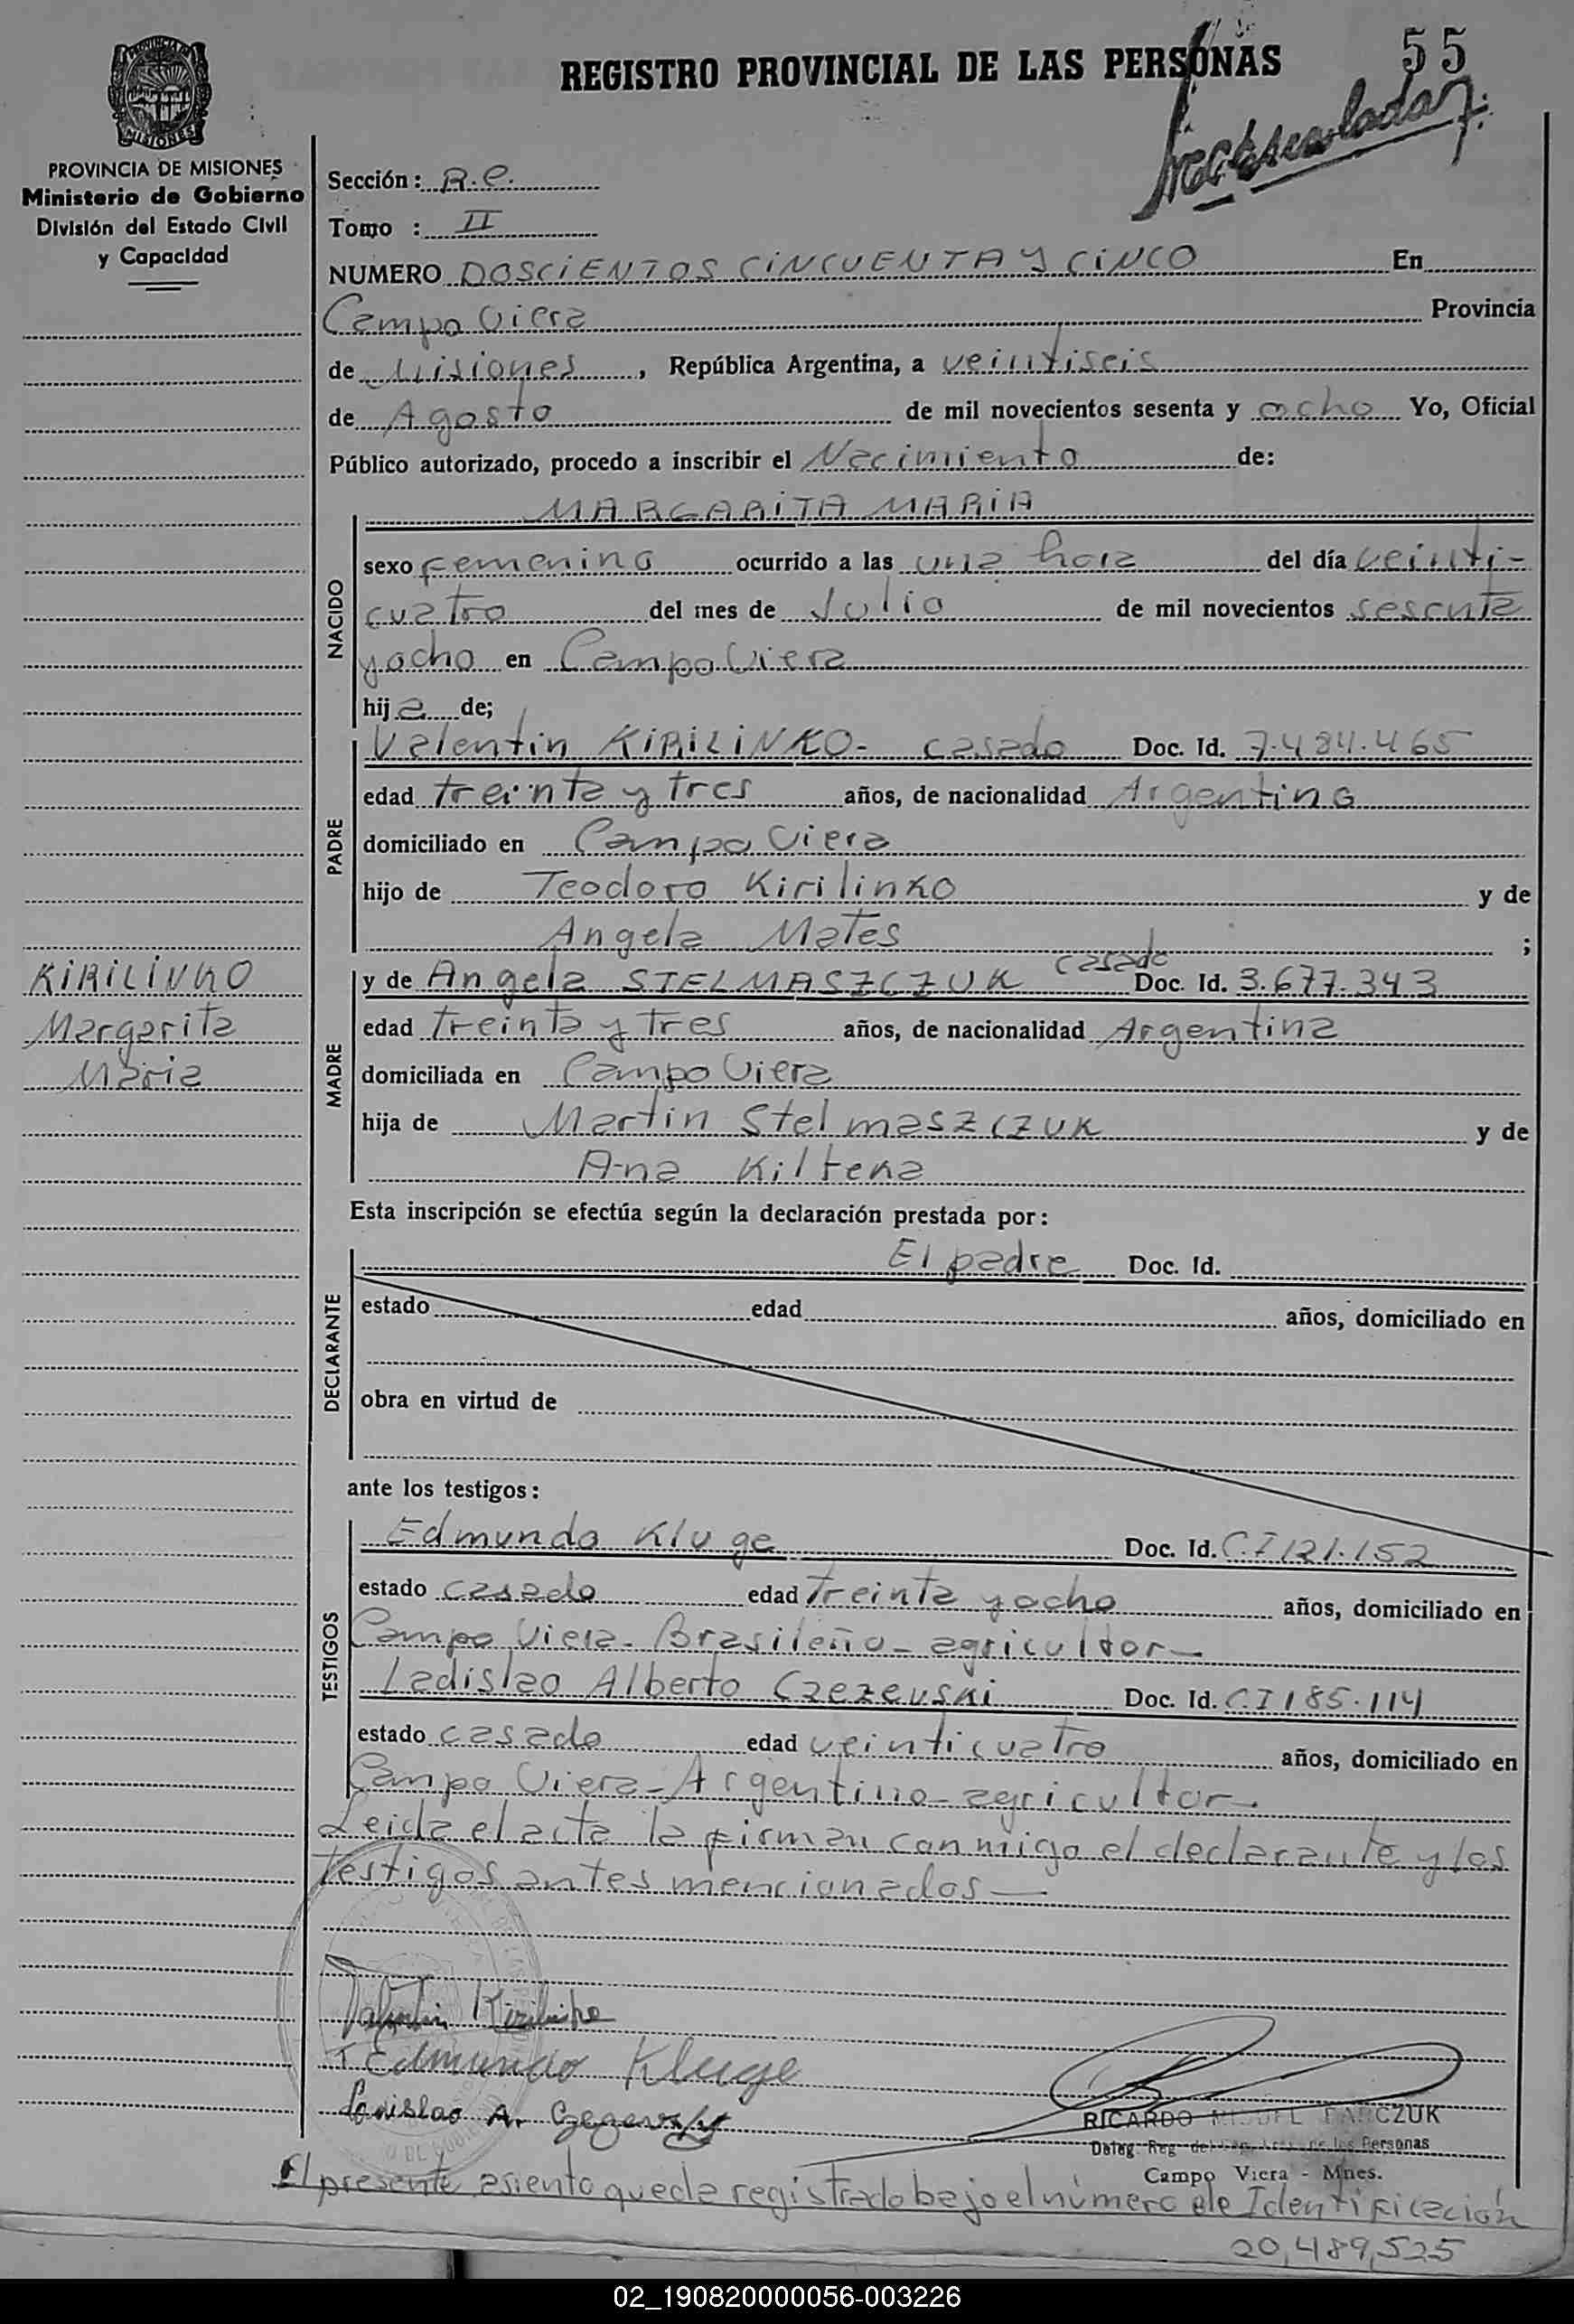 REGISTRO PROVINCIAL DE LAS PERSONAS
55
PROVINCIA DE MISIONES
Ministerio de Gobierno
División del Estado Civil
y Capacidad
Sección: R.E.
Tomo : II
NUMERO DOSCIENTOS CINCUENTA Y CINCO En
Campo Viera Provincia
de Misiones, República Argentina, a veintiseis
de Agosto de mil novecientos sesenta y ocho Yo, Oficial
Público autorizado, procedo a inscribir el Nacimiento de:
MARGARITA MARIA
NACIDO
sexo femenino ocurrido a las una hora del día veinti-
cuatro del mes de Julio de mil novecientos sesenta
y ocho en Campo Viera
hija de;
PADRE
Valentin KIRILINKO- casado Doc. Id. 7.484.465
edad treinta y tres años, de nacionalidad Argentino
domiciliado en Campo Viera
hijo de Teodoro Kirilinko y de
Angela Mates ;
KIRILINKO
Margarita
Maria
MADRE
y de Angela STELMASZCZUK casada Doc. Id. 3.677.343
edad treinta y tres años, de nacionalidad Argentina
domiciliada en Campo Viera
hija de Martin Stelmaszczuk y de
Ana
Esta inscripción se efectúa según la declaración prestada por:
DECLARANTE
El padre Doc. Id.
estado edad años, domiciliado en
obra en virtud de
ante los testigos:
TESTIGOS
Edmundo Kluge Doc. Id. C.I 121.152
estado casado edad treinta y ocho años, domiciliado en
Campo Viera- Brasileño- agricultor-
Ladislao Alberto Czezevski Doc. Id. C.I 185.114
estado casado edad veinticuatro años, domiciliado en
Campo Viera- Argentino- agricultor-
Leida el acta la firman conmigo el declarante y los
testigos antes mencionados-
Valentin Kirilinko
Edmundo Kluge
Ladislao A. Czezevski
RICARDO MIGUEL
Deleg. Reg. de las Personas
Campo Viera - Mnes.
El presente asiento queda registrado bajo el número de Identificación
20,489,525
02_190820000056-003226